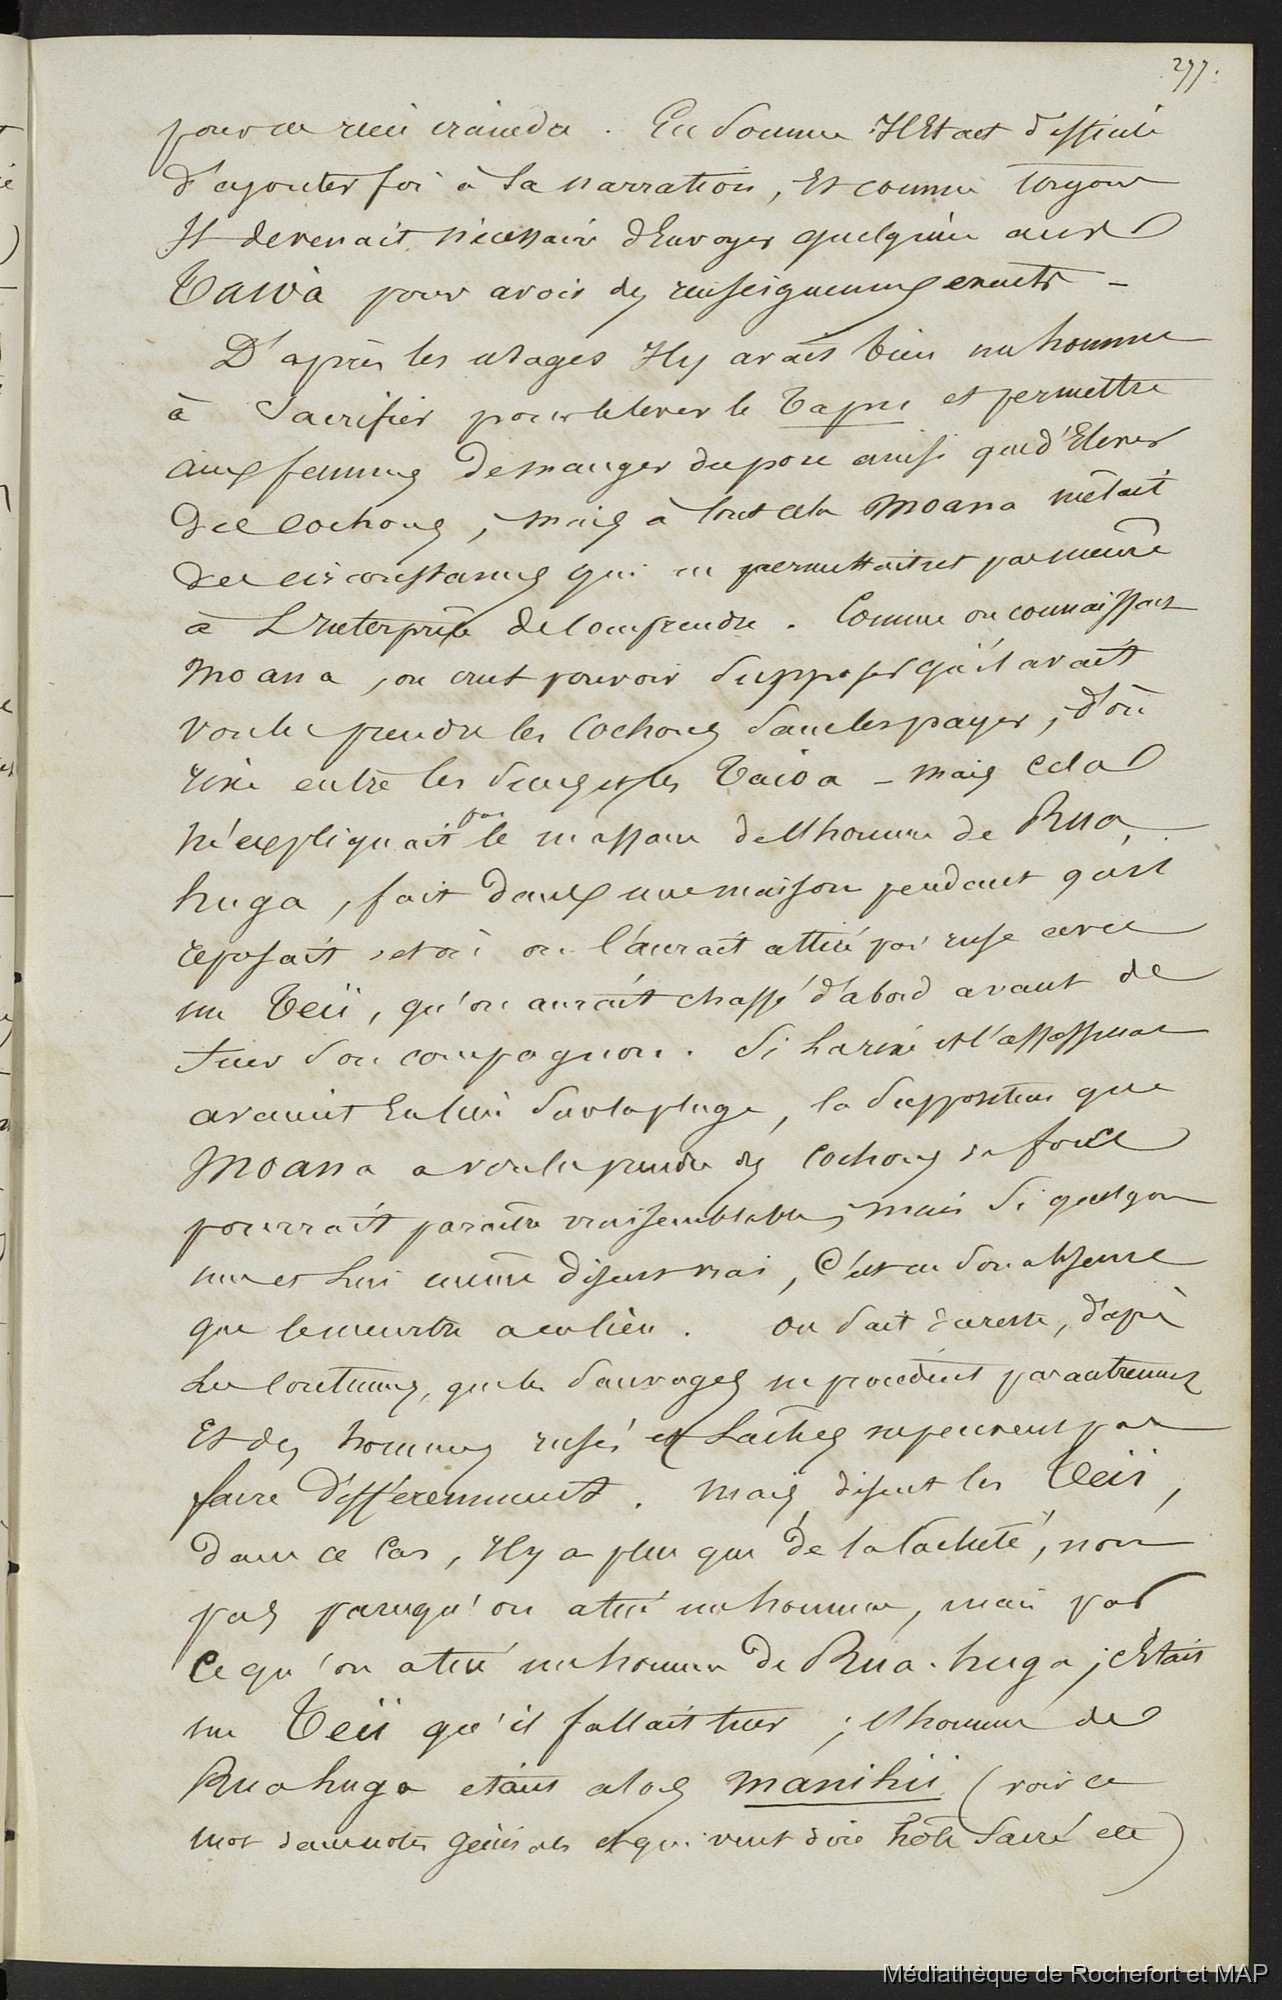 277.
pour ne rien craindre. En somme Il était difficile
d'ajouter foi à sa narration, Et comme toujours
Il devenait nécessaire d'Envoyer quelqu'un aux
Taioa pour avoir des renseignements exacts –
D'après les usages Il y avait bien un homme
à Sacrifier pour lelever le tapu et permettre
aux femmes de manger du porc ainsi que d'Elever
des cochons, mais à tout cela Moana mêlait
des circonstances qui ne permettaient pas même
à L'Interprète de comprendre. Comme on connaissait
Moana, on crut pouvoir supposer qu'il avait
voulu prendre les cochons sans les payer, d'où
rixe entre les siens et les Taioa – mais cela
n'expliquait pas le massacre de l'homme de Rua
huga, fait dans une maison pendant qu'il
reposait, et où on l'aurait attiré par ruse avec
un Teii, qu'on aurait chassé d'abord avant de
tuer son compagnon. Si la rixe et l'assassinat
avaient Eu lieu sur la plage, la supposition que
Moana a voulu prendre des cochons de force
pourrait paraître vraisemblable; mais si quelqu'
un et lui même disent vrai, C'est en son absence
que le meurtre a eu lieu. On sait du reste, d'après
Les Coutumes, que les Sauvages ne procèdent pas autrement
Et des hommes rusés et Lâches ne peuvent pas
faire différemment. Mais, disent les Teii,
dans ce cas, Il y a plus que de la lâcheté, non
pas parcequ'on a tué un homme, mais par
ce qu'on a tué un homme de Rua-huga; c'Etait
un Teii qu'il fallait tuer; l'homme de
Ruahuga etait alors manihii (voir ce
mot dans notes générales et qui veut dire hôte Sacré etc)
Médiathèque de Rochefort et MAP